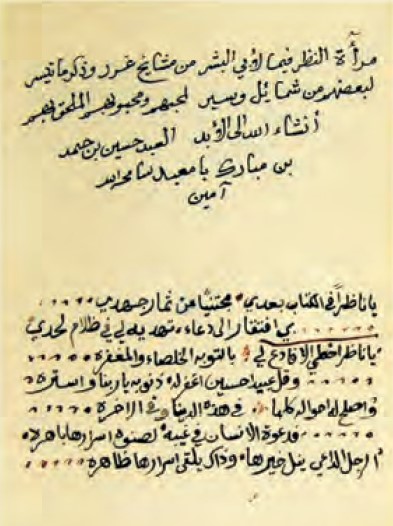 مرآة النظر فيما لأبي البشر من مشايخ غرر وذكر ما تيسر
لبعضهم من شمائل وسير لمحبهم ومحبوبهم الملحق بهم
أنشاء الله الى الأبد العبد حسين بن حمد
بن مبارك با معبد سامحه الله
آمين
يا ناظرًا في الكتاب بعدي مجتنيًا من ثمار جهدي
بي افتقار الى دعاء تهديه لي في ظلام لحدي
يا ناظر اخطي الا فادع لي بالتوبه الخلصاء والمغفره
وقل عبيد حسين اغفر له ذنوبه يا ربنا واستره
واصلح له احواله كلها في هذه الدنيا وفي الاخره
فدعوة الانسان في غيبه لصنوه اسرارها باهره
الرجل الداعي ينل خيرها وذاك يلقى اسرارها ظاهره